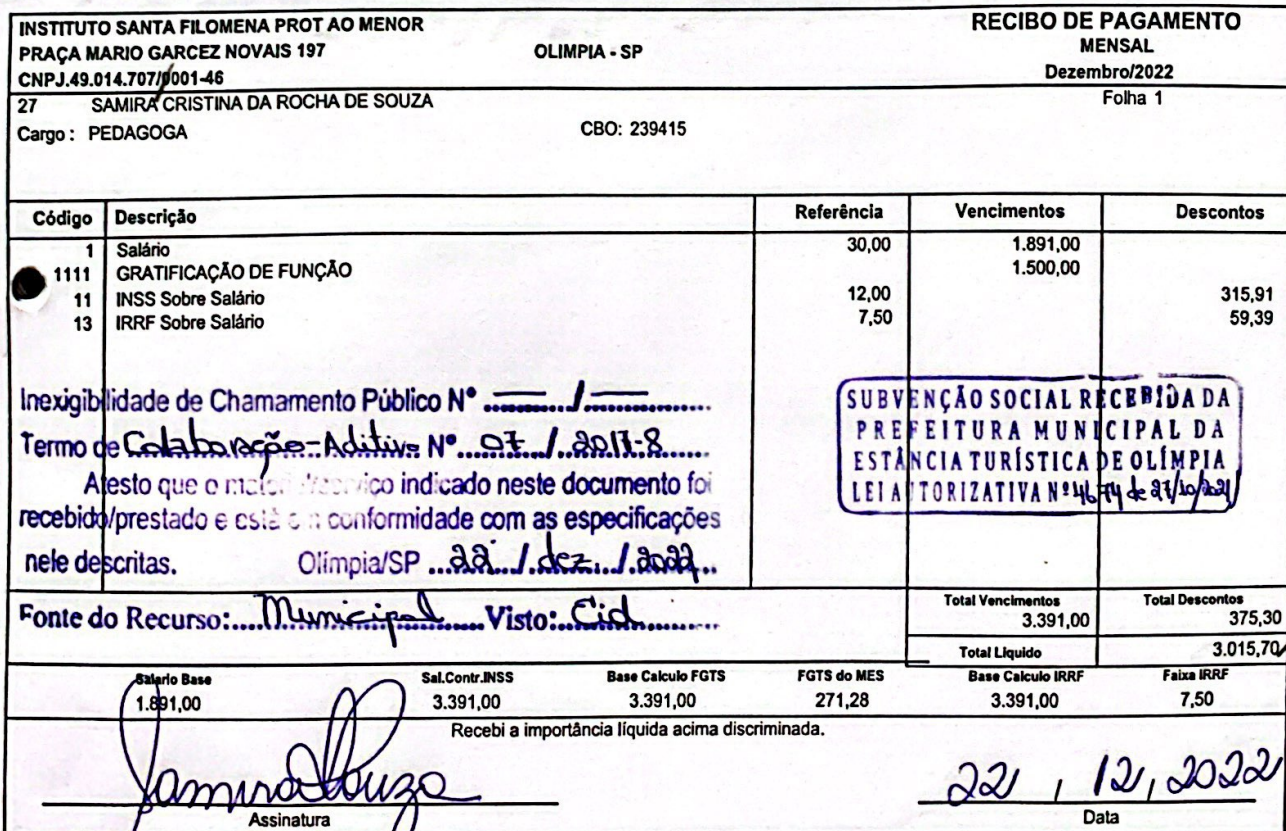 INSTITUTO SANTA FILOMENA PROT AO MENOR
PRAÇA MARIO GARCEZ NOVAIS 197 OLIMPIA - SP
CNPJ.49.014.707/0001-46
RECIBO DE PAGAMENTO
MENSAL
Dezembro/2022
27 SAMIRA CRISTINA DA ROCHA DE SOUZA Folha 1
Cargo : PEDAGOGA CBO: 239415
Código Descrição Referência Vencimentos Descontos
1 Salário 30,00 1.891,00
1111 GRATIFICAÇÃO DE FUNÇÃO 1.500,00
11 INSS Sobre Salário 12,00 315,91
13 IRRF Sobre Salário 7,50 59,39
Inexigibilidade de Chamamento Público Nº ...... / ......
Termo de Colaboração-Aditivo Nº 07 / 2017-8
Atesto que o indicado neste documento foi
recebido/prestado e está em conformidade com as especificações
nele descritas. Olímpia/SP 22 / dez / 2022
SUBVENÇÃO SOCIAL RECEBIDA DA
PREFEITURA MUNICIPAL DA
ESTÂNCIA TURÍSTICA DE OLÍMPIA
LEI AUTORIZATIVA Nº 4674 de 27/10/2021
Fonte do Recurso: Municipal Visto: Cid
Total Vencimentos Total Descontos
3.391,00 375,30
Total Liquido 3.015,70
Salario Base Sal.Contr.INSS Base Calculo FGTS FGTS do MES Base Calculo IRRF Faixa IRRF
1.891,00 3.391,00 3.391,00 271,28 3.391,00 7,50
Recebi a importância líquida acima discriminada.
Samira Souza 22, 12, 2022
Assinatura Data